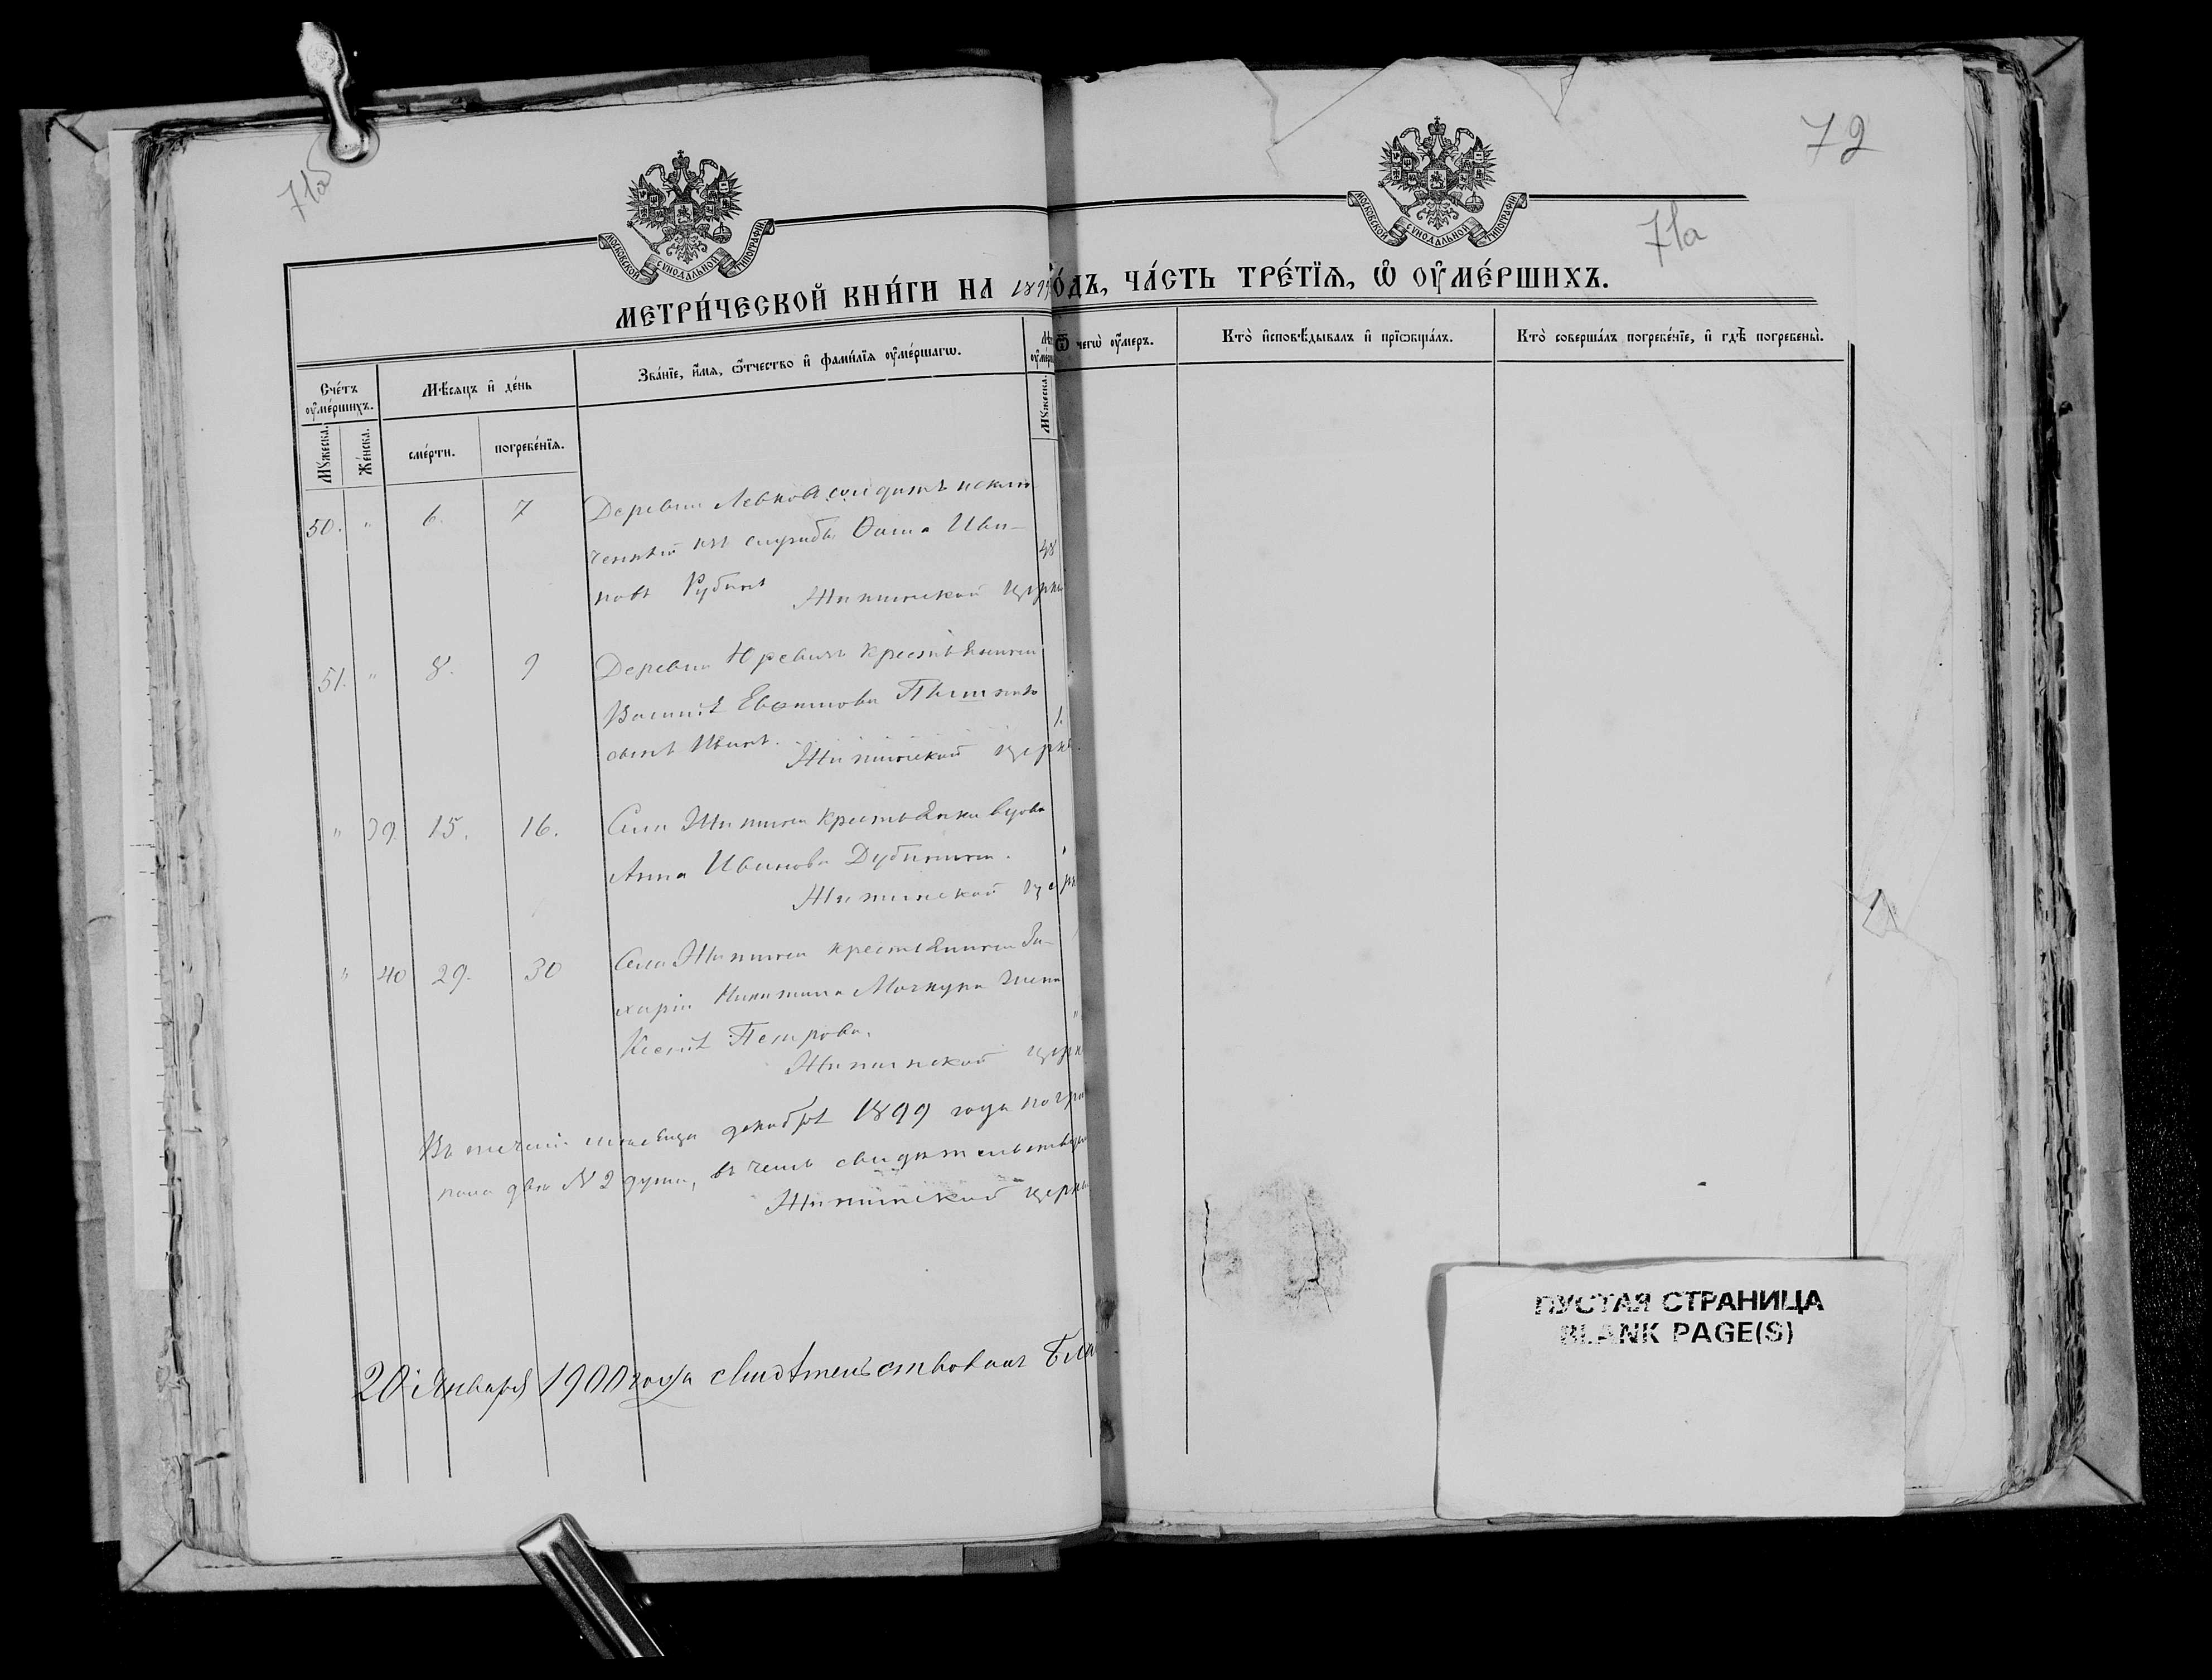 71об
72
71а
МОСКОВСКОЙ СѴНОДАЛЬНОЙ ТИПОГРАФІИ
МОСКОВСКОЙ СѴНОДАЛЬНОЙ ТИПОГРАФІИ
МЕТРИ́ЧЕСКОЙ КНИ́ГИ НА 1899 ГО́ДЪ, ЧА́СТЬ ТРЕ́ТІѦ, Ѡ҆ ОУ҆МЕ́РШИХЪ.
Сче́тъ оу҆ме́ршихъ.
Мꙋ́жеска.
Же́нска.
Мѣ́сяцъ и҆ де́нь
сме́рти.
погребе́нїѧ.
Зва́нїе, и҆́мѧ, ѻ҆́тчество и҆ фамилїѧ оу҆ме́ршагѡ.
Мꙋ́жеска.
Ѿ чегѡ̀ оу҆́меръ.
Кто̀ и҆сповѣ́дывалъ и҆ прїѡбща́лъ.
Кто̀ соверша́лъ погребе́нїе, и҆ гдѣ̀ погребены̀.
50. " 6. 7 Деревни Левков солдатъ исклю-
ченный изъ службы Ѳома Ива- 48
новъ Рубанъ
Житинской церкв
51. " 8. 9 Деревни Юревичъ крестьянина
Василія Евфимова
сынъ Иванъ. 1.
Житинской церкв
" 39. 15. 16. Села Житина крестьянка вдова
Анна Иванова Дубинина.
Житинской церк
" 40 29. 30 Села Житина крестьянина За-
харіи Никитина Мочкура жена
Ксенія Петрова.
Житинской церк
Въ теченіи мѣсяца декабря 1899 года погре
двѣ № 2 души, въ чемъ свидѣтельствуем
Житинской церкв
20 Января 1900 года свидѣтельствовалъ Бла
ПУСТАЯ СТРАНИЦА
BLANK PAGE(S)